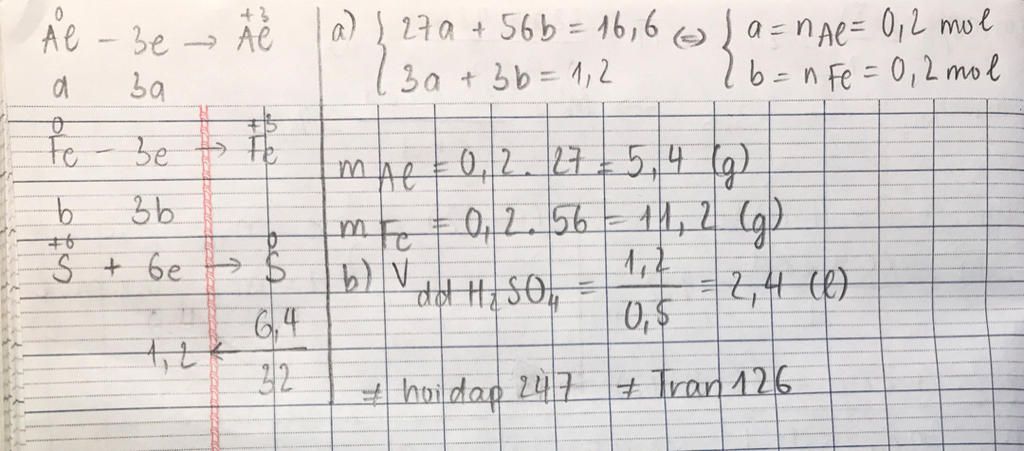 0 +3
Al - 3e → Al
a 3a
0 +3
Fe - 3e → Fe
b 3b
+6 0
S + 6e → S
1,2 ← 6,4/32
a) { 27a + 56b = 16,6 ⇔ { a = nAl = 0,2 mol
3a + 3b = 1,2 b = nFe = 0,2 mol
mAl = 0,2 . 27 = 5,4 (g)
mFe = 0,2 . 56 = 11,2 (g)
b) Vdd H2SO4 = 1,2/0,5 = 2,4 (l)
≠ hoidap 247 ≠ Tran126